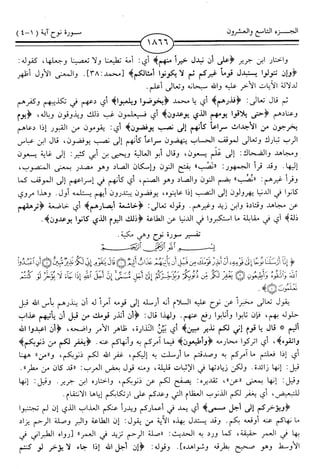 الجـــزء التاسع والعشرون
١٨٦٦
سورة نوح آية (١-٤)
واختار ابن جرير ﴿على أن نبدل خيراً منهم﴾ أي: أمة تطيعنا ولا تعصينا وجعلها، كقوله:
﴿وإن تتولوا يستبدل قوماً غيركم ثم لا يكونوا أمثالكم﴾ [محمد:٣٨]. والمعنى الأول أظهر
لدلالة الآيات الأخر عليه والله سبحانه وتعالى أعلم.
ثم قال تعالى: ﴿فذرهم﴾ أي يا محمد ﴿يخوضوا ويلعبوا﴾ أي دعهم في تكذيبهم وكفرهم
وعنادهم ﴿حتى يلاقوا يومهم الذي يوعدون﴾ أي فسيعلمون غب ذلك ويذوقون وباله، ﴿يوم
يخرجون من الأجداث سراعاً كأنهم إلى نصب يوفضون﴾ أي: يقومون من القبور إذا دعاهم
الرب تبارك وتعالى لموقف الحساب ينهضون سراعاً كأنهم إلى نصب يوفضون، قال ابن عباس
ومجاهد والضحاك: إلى علم يسعون، وقال أبو العالية ويحيى بن أبي كثير: إلى غاية يسعون
إليها. وقد قرأ الجمهور: «نَصْب» بفتح النون وإسكان الصاد وهو مصدر بمعنى المنصوب،
وقرأ غيرهم: «نُصُب» بضم النون والصاد وهو الصنم، أي كأنهم في إسراعهم إلى الموقف كما
كانوا في الدنيا يهرولون إلى النصب إذا عاينوه، يوفضون يبتدرون أيهم يستلمه أول. وهذا مروي
عن مجاهد وقتادة وابن زيد وغيرهم. وقوله تعالى: ﴿خاشعة أبصارهم﴾ أي خاضعة ﴿ترهقهم
ذلة﴾ أي في مقابلة ما استكبروا في الدنيا عن الطاعة ﴿ذلك اليوم الذي كانوا يوعدون﴾.
تفسير سورة نوح وهي مكية.
يقول تعالى مخبراً عن نوح عليه السلام أنه أرسله إلى قومه آمراً له أن ينذرهم بأس الله قبل
حلوله بهم، فإن تابوا وأنابوا رفع عنهم. ولهذا قال: ﴿أن أنذر قومك من قبل أن يأتيهم عذاب
أليم * قال يا قوم إني لكم نذير مبين﴾ أي بيّن النذارة، ظاهر الأمر واضحه، ﴿أن اعبدوا الله
واتقوه﴾، أي اتركوا محارمه ﴿وأطيعون﴾ فيما آمركم به وأنهاكم عنه. ﴿يغفر لكم من ذنوبكم﴾
أي إذا فعلتم ما آمركم به وصدقتم ما أرسلت به إليكم، غفر الله لكم ذنوبكم، و«من» ههنا
قيل: إنها زائدة. ولكن زيادتها في الإثبات قليلة، ومنه قول بعض العرب: «قد كان من مطر».
وقيل: إنها بمعنى «عن»، تقديره: يصفح لكم عن ذنوبكم، واختاره ابن جرير. وقيل: إنها
للتبعيض، أي يغفر لكم الذنوب العظام التي وعدكم على ارتكابكم إياها الانتقام.
﴿ويؤخركم إلى أجل مسمى﴾ أي يمد في أعماركم ويدرأ عنكم العذاب الذي إن لم تجتنبوا
ما نهاكم عنه أوقعه بكم. وقد يستدل بهذه الآية من يقول: إن الطاعة والبر وصلة الرحم يزاد
بها في العمر حقيقة، كما ورد به الحديث: «صلة الرحم تزيد في العمر» [رواه الطبراني في
الأوسط وهو صحيح بطرقه وشواهده]. وقوله: ﴿إن أجل الله إذا جاء لا يؤخر لو كنتم